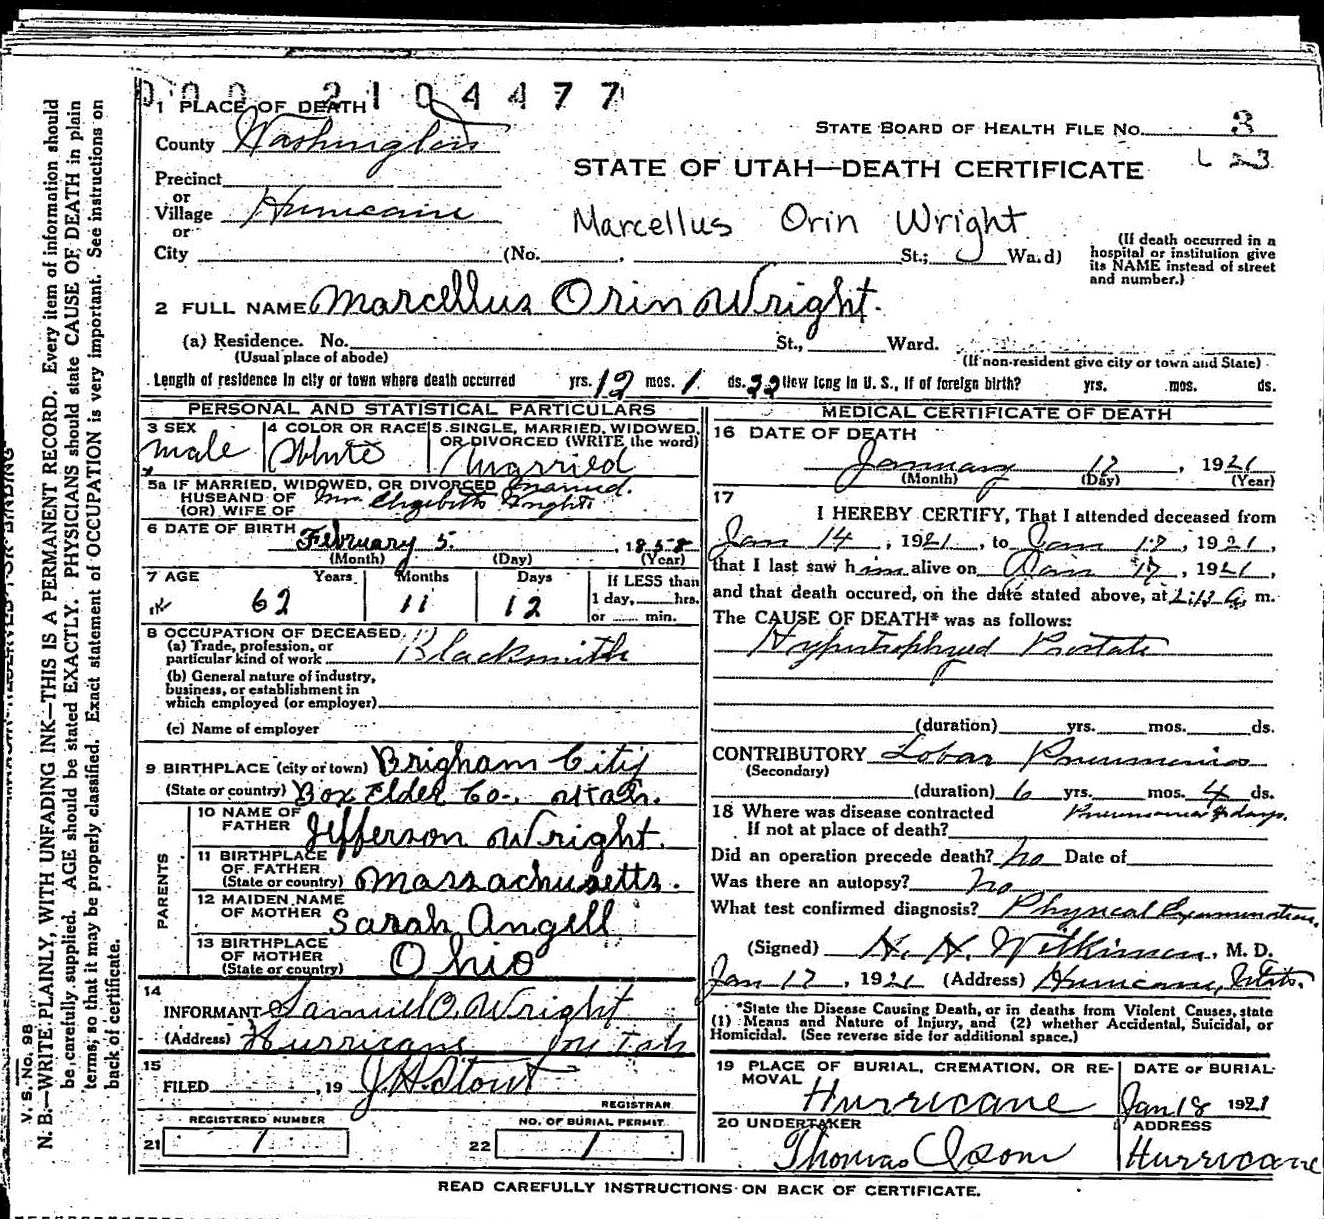 000 2104477
1 PLACE OF DEATH
County Washington
STATE BOARD OF HEALTH FILE No. 3
L 23
STATE OF UTAH—DEATH CERTIFICATE
Precinct
or
Village Hurricane
or
Marcellus Orin Wright
City (No. St.; Ward)
(If death occurred in a
hospital or institution give
its NAME instead of street
and number.)
2 FULL NAME Marcellus Orin Wright.
(a) Residence. No. St., Ward.
(Usual place of abode) (If non-resident give city or town and State)
Length of residence in city or town where death occurred yrs. 12 mos. 1 ds. 22 How long in U. S., if of foreign birth? yrs. mos. ds.
PERSONAL AND STATISTICAL PARTICULARS
3 SEX 4 COLOR OR RACE 5 SINGLE, MARRIED, WIDOWED, OR DIVORCED (WRITE the word)
Male White Married
5a IF MARRIED, WIDOWED, OR DIVORCED Married.
HUSBAND OF
(OR) WIFE OF Mrs. Elizabeth Wright
6 DATE OF BIRTH February 5. , 1858
(Month) (Day) (Year)
7 AGE Years Months Days If LESS than
1 day, hrs.
or min.
62 11 12
8 OCCUPATION OF DECEASED
(a) Trade, profession, or
particular kind of work Blacksmith
(b) General nature of industry,
business, or establishment in
which employed (or employer)
(c) Name of employer
9 BIRTHPLACE (city or town) Brigham City
(State or country) Box Elder Co., Utah.
PARENTS
10 NAME OF
FATHER Jefferson Wright.
11 BIRTHPLACE
OF FATHER
(State or country) Massachusetts.
12 MAIDEN NAME
OF MOTHER Sarah Angell
13 BIRTHPLACE
OF MOTHER
(State or country) Ohio
14
INFORMANT Samuel O. Wright
(Address) Hurricane Utah
15
FILED , 19 J. H. Stout
REGISTRAR
REGISTERED NUMBER NO. OF BURIAL PERMIT
21 1 22 1
MEDICAL CERTIFICATE OF DEATH
16 DATE OF DEATH
January 17 , 1921
(Month) (Day) (Year)
17
I HEREBY CERTIFY, That I attended deceased from
Jan 14 , 1921 , to Jan 17 , 1921 ,
that I last saw him alive on Jan 17 , 1921 ,
and that death occured, on the date stated above, at m.
The CAUSE OF DEATH* was as follows:
Hypertrophyed Prostate
(duration) yrs. mos. ds.
CONTRIBUTORY Lobar Pneumonia
(Secondary)
(duration) 6 yrs. mos. 4 ds.
18 Where was disease contracted Pneumonia 4 days.
If not at place of death?
Did an operation precede death? no Date of
Was there an autopsy? no
What test confirmed diagnosis? Physical Examination.
(Signed) H. H. Wilkinson, M. D.
Jan 17 , 1921 (Address) Hurricane, Utah.
*State the Disease Causing Death, or in deaths from Violent Causes, state
(1) Means and Nature of Injury, and (2) whether Accidental, Suicidal, or
Homicidal. (See reverse side for additional space.)
19 PLACE OF BURIAL, CREMATION, OR RE-
MOVAL Hurricane
DATE OF BURIAL
Jan 18 1921
20 UNDERTAKER
Thomas Isom
ADDRESS
Hurricane
READ CAREFULLY INSTRUCTIONS ON BACK OF CERTIFICATE.
V. S. No. 98
N. B.—WRITE PLAINLY, WITH UNFADING INK—THIS IS A PERMANENT RECORD. Every item of information should
be carefully supplied. AGE should be stated EXACTLY. PHYSICIANS should state CAUSE OF DEATH in plain
terms, so that it may be properly classified. Exact statement of OCCUPATION is very important. See instructions on
back of certificate.